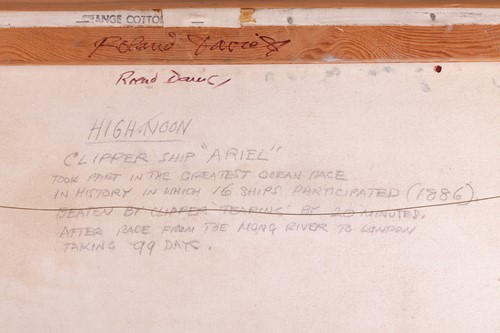 RANGE COTTO
Roland Davies
Roland Davies
HIGH NOON
CLIPPER SHIP "ARIEL"
TOOK PART IN THE GREATEST OCEAN RACE
IN HISTORY IN WHICH 16 SHIPS PARTICIPATED (1886)
BEATEN BY CLIPPER 'TEAPING' BY 20 MINUTES.
AFTER RACE FROM THE MONG RIVER TO LONDON
TAKING 99 DAYS.